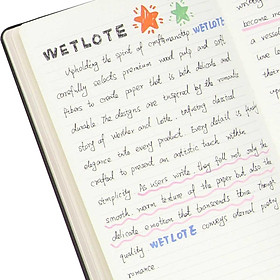 WETLOTE
Upholding the spirit of craftsmanship WETLOTE
carefully selects premium wood pulp and soft
fibers to create paper that is both delicate and
durable. The designs are inspired by the romantic
story of weather and lotte, infusing classical
elegance into every product. Every detail is finely
crafted to present an artistic touch within
simplicity. As users write, they feel not only the
smooth, warm texture of the paper but also a
delicate emotion that transcends time. Through
quality WETLOTE conveys eternal poetry
romance.
writing
become